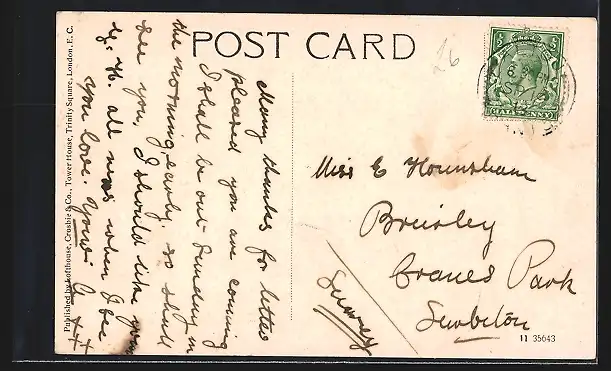 POST CARD
26
HALFPENNY
Many thanks for letter
pleased you are coming
I shall be out Sunday in
the morning early. so shall
see you, I should like your
all when I see
you love. Yours
x x x
Miss E Hounsham
Brierley
Cranes Park
Surbiton
Surrey
Published by Lofthouse, Crosbie & Co., Tower House, Trinity Square, London, E.C.
11 35643